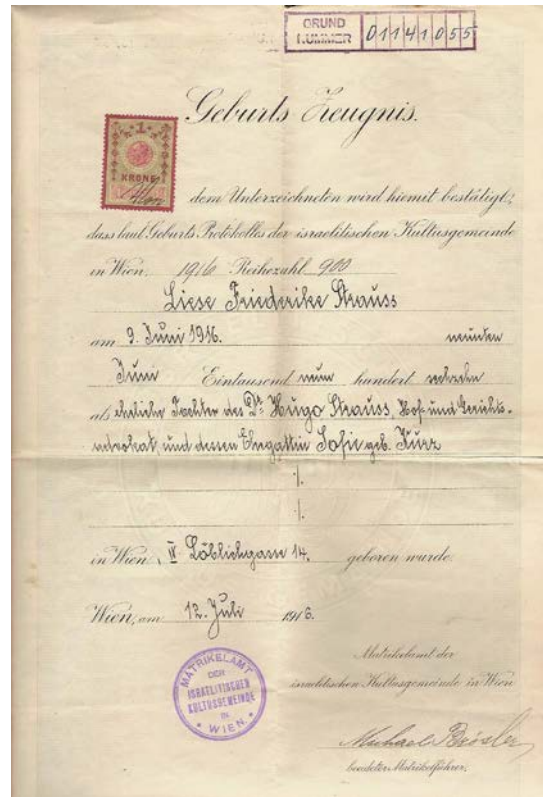 GRUND
NUMMER
01141055
Geburts Zeugnis.
1
KRONE
dem Unterzeichneten wird hiemit bestätigt,
dass laut Geburts Protokolles der israelitischen Kultusgemeinde
in Wien, 1916 Reihezahl 900
Liese Friederike Strauss
am 9. Juni 1916. neunten
Juni Eintausend neun hundert sechzehn
als eheliche Tochter des Dr. Hugo Strauss, Hof- und Gerichts-
advokat, und dessen Ehegattin Sofie geb. Kurz
./.
./.
in Wien, Löblichgasse 14. geboren wurde.
Wien, am 12. Juli 1916.
Matrikelamt der
israelitischen Kultusgemeinde in Wien
MATRIKELAMT
DER
ISRAELITISCHEN
KULTUSGEMEINDE
IN
WIEN
Michael
beeideter Matrikelführer.